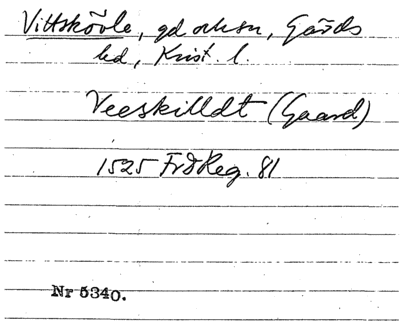 Vittskövle, gd o. ksn, Gärds
hd, Krist. l.
Veeskilldt (Gaard)
1525 FrdReg. 81
Nr 5340.